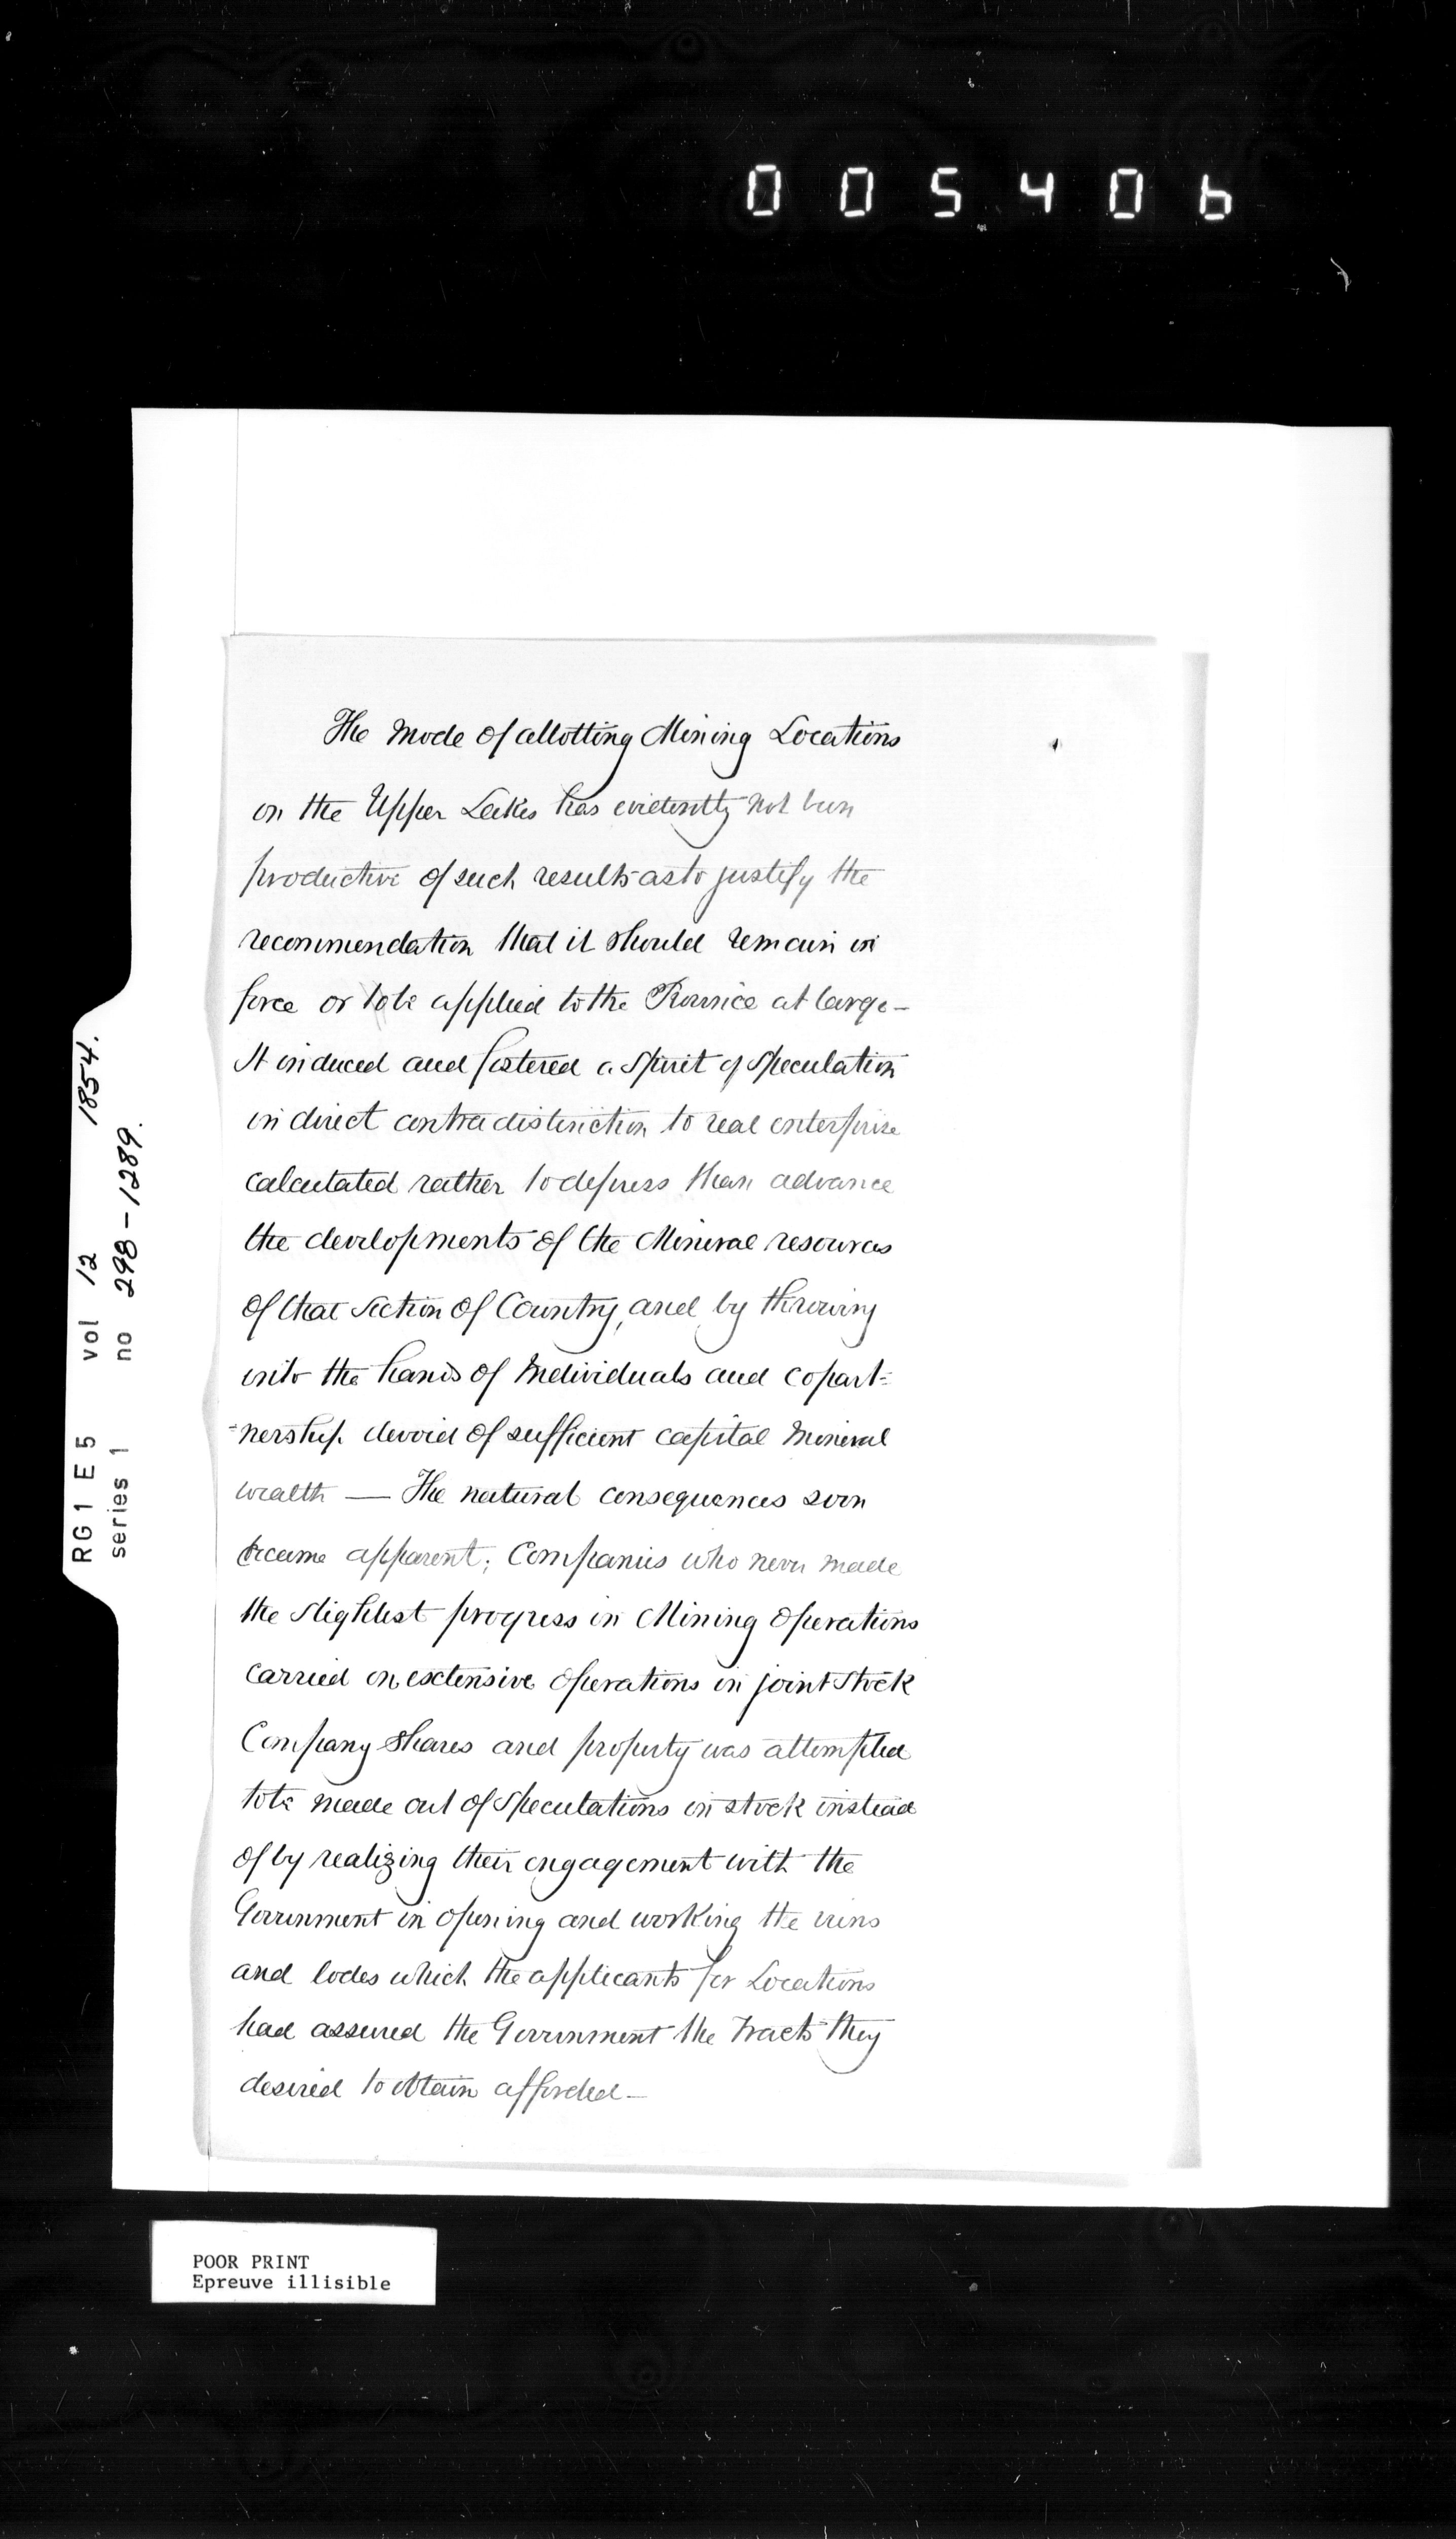 005406
The Mode of allotting Mining Locations
on the Upper Lakes has evidently not been
productive of such results as to justify the
recommendation that it should remain in
force or to be applied to the Province at large —
It induced and fostered a Spirit of Speculation
in direct contradistinction to real enterprise
calculated rather to depress than advance
the developments of the Mineral resources
of that Section of Country, and by throwing
into the hands of Individuals and copart=
=nership devoid of sufficient capital Mineral
wealth — The natural consequences soon
became apparent; Companies who never made
the slightest progress in Mining Operations
carried on extensive operations in joint Stock
Company Shares and property was attempted
to be made out of Speculations in stock instead
of by realizing their engagement with the
Government in opening and working the veins
and lodes which the applicants for Locations
had assured the Government the Tracts they
desired to obtain afforded —
RG1 E5 vol 12 1854.
series 1 no 298-1289.
POOR PRINT
Epreuve illisible